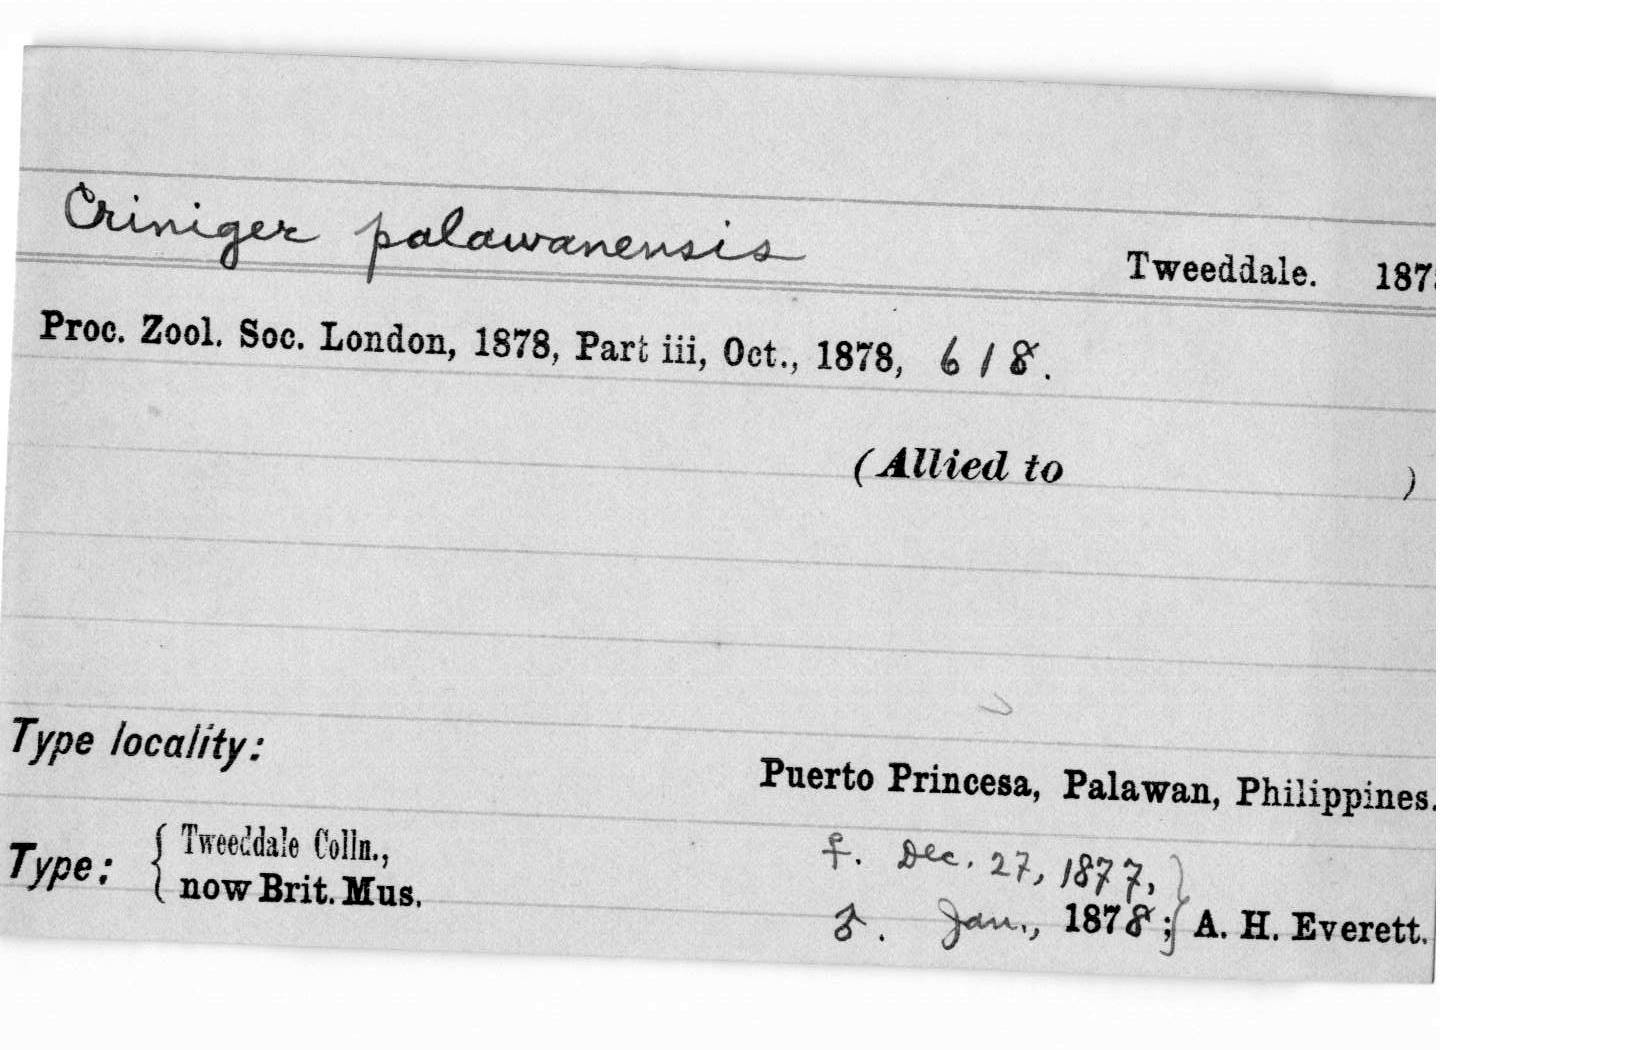 Criniger palawanensis Tweeddale. 187
Proc. Zool. Soc. London, 1878, Part iii, Oct., 1878, 618.
(Allied to )
Type locality:
Puerto Princesa, Palawan, Philippines.
Type: { Tweeddale Colln., ♀. Dec. 27, 1877, }
now Brit. Mus. ♂. Jan., 1878; A. H. Everett.